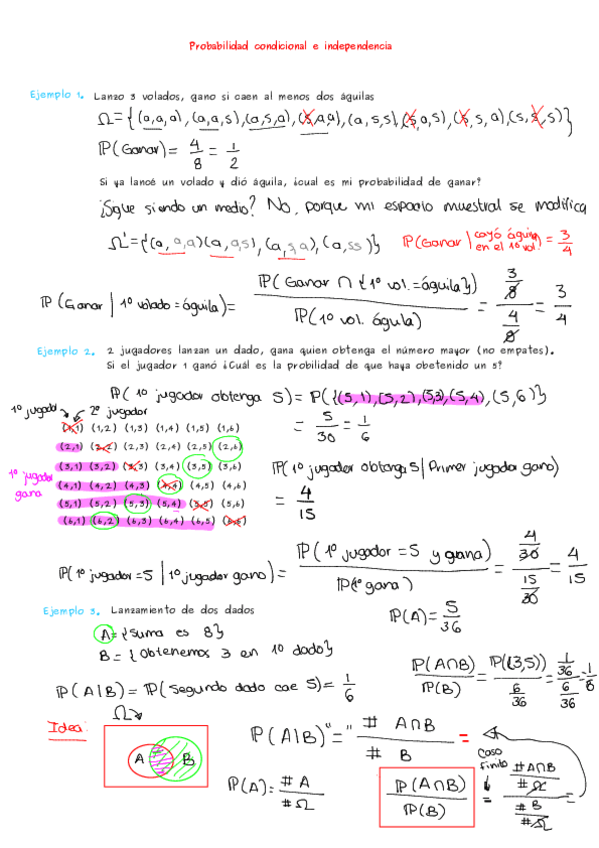 Probabilidad condicional e independencia
Ejemplo 1. Lanzo 3 volados, gano si caen al menos dos águilas
Ω = {(a,a,a), (a,a,s), (a,s,a), (s,a,a), (a,s,s), (s,a,s), (s,s,a), (s,s,s)}
P(Ganar) = 4/8 = 1/2
Si ya lancé un volado y dió águila, ¿cual es mi probabilidad de ganar?
¿Sigue siendo un medio? No, porque mi espacio muestral se modifica
Ω' = {(a,a,a)(a,a,s), (a,s,a), (a,ss)} P(Ganar | cayó águila en el 1º vol.) = 3/4
P(Ganar | 1º volado = águila) = P(Ganar ∩ {1º vol. = águila}) / P(1º vol. águila) = 3/8 / 4/8 = 3/4
Ejemplo 2. 2 jugadores lanzan un dado, gana quien obtenga el número mayor (no empates).
Si el jugador 1 ganó ¿Cuál es la probabilidad de que haya obetenido un 5?
P(1º jugador obtenga 5) = P({(5,1), (5,2), (5,3), (5,4), (5,6)}
= 5/30 = 1/6
1º jugador 2º jugador
(1,1) (1,2) (1,3) (1,4) (1,5) (1,6)
(2,1) (2,2) (2,3) (2,4) (2,5) (2,6)
(3,1) (3,2) (3,3) (3,4) (3,5) (3,6)
(4,1) (4,2) (4,3) (4,4) (4,5) (4,6)
(5,1) (5,2) (5,3) (5,4) (5,5) (5,6)
(6,1) (6,2) (6,3) (6,4) (6,5) (6,6)
1º jugador
gana
P(1º jugador obtenga 5 | Primer jugador gano)
= 4/15
P(1º jugador = 5 | 1º jugador gano) = P(1º jugador = 5 y gana) / P(1º gana) = 4/30 / 15/30 = 4/15
Ejemplo 3. Lanzamiento de dos dados
P(A) = 5/36
A = {Suma es 8}
B = {Obtenemos 3 en 1º dado}
P(A|B) = P(Segundo dado cae 5) = 1/6
P(A∩B) / P(B) = P((3,5)) / 6/36 = 1/36 / 6/36 = 1/8
Ω
Idea:
A B
P(A|B) "=" # A∩B / # B =
P(A) = # A / # Ω
P(A∩B) / P(B)
Caso
finito
= #A∩B / #Ω / #B / #Ω =